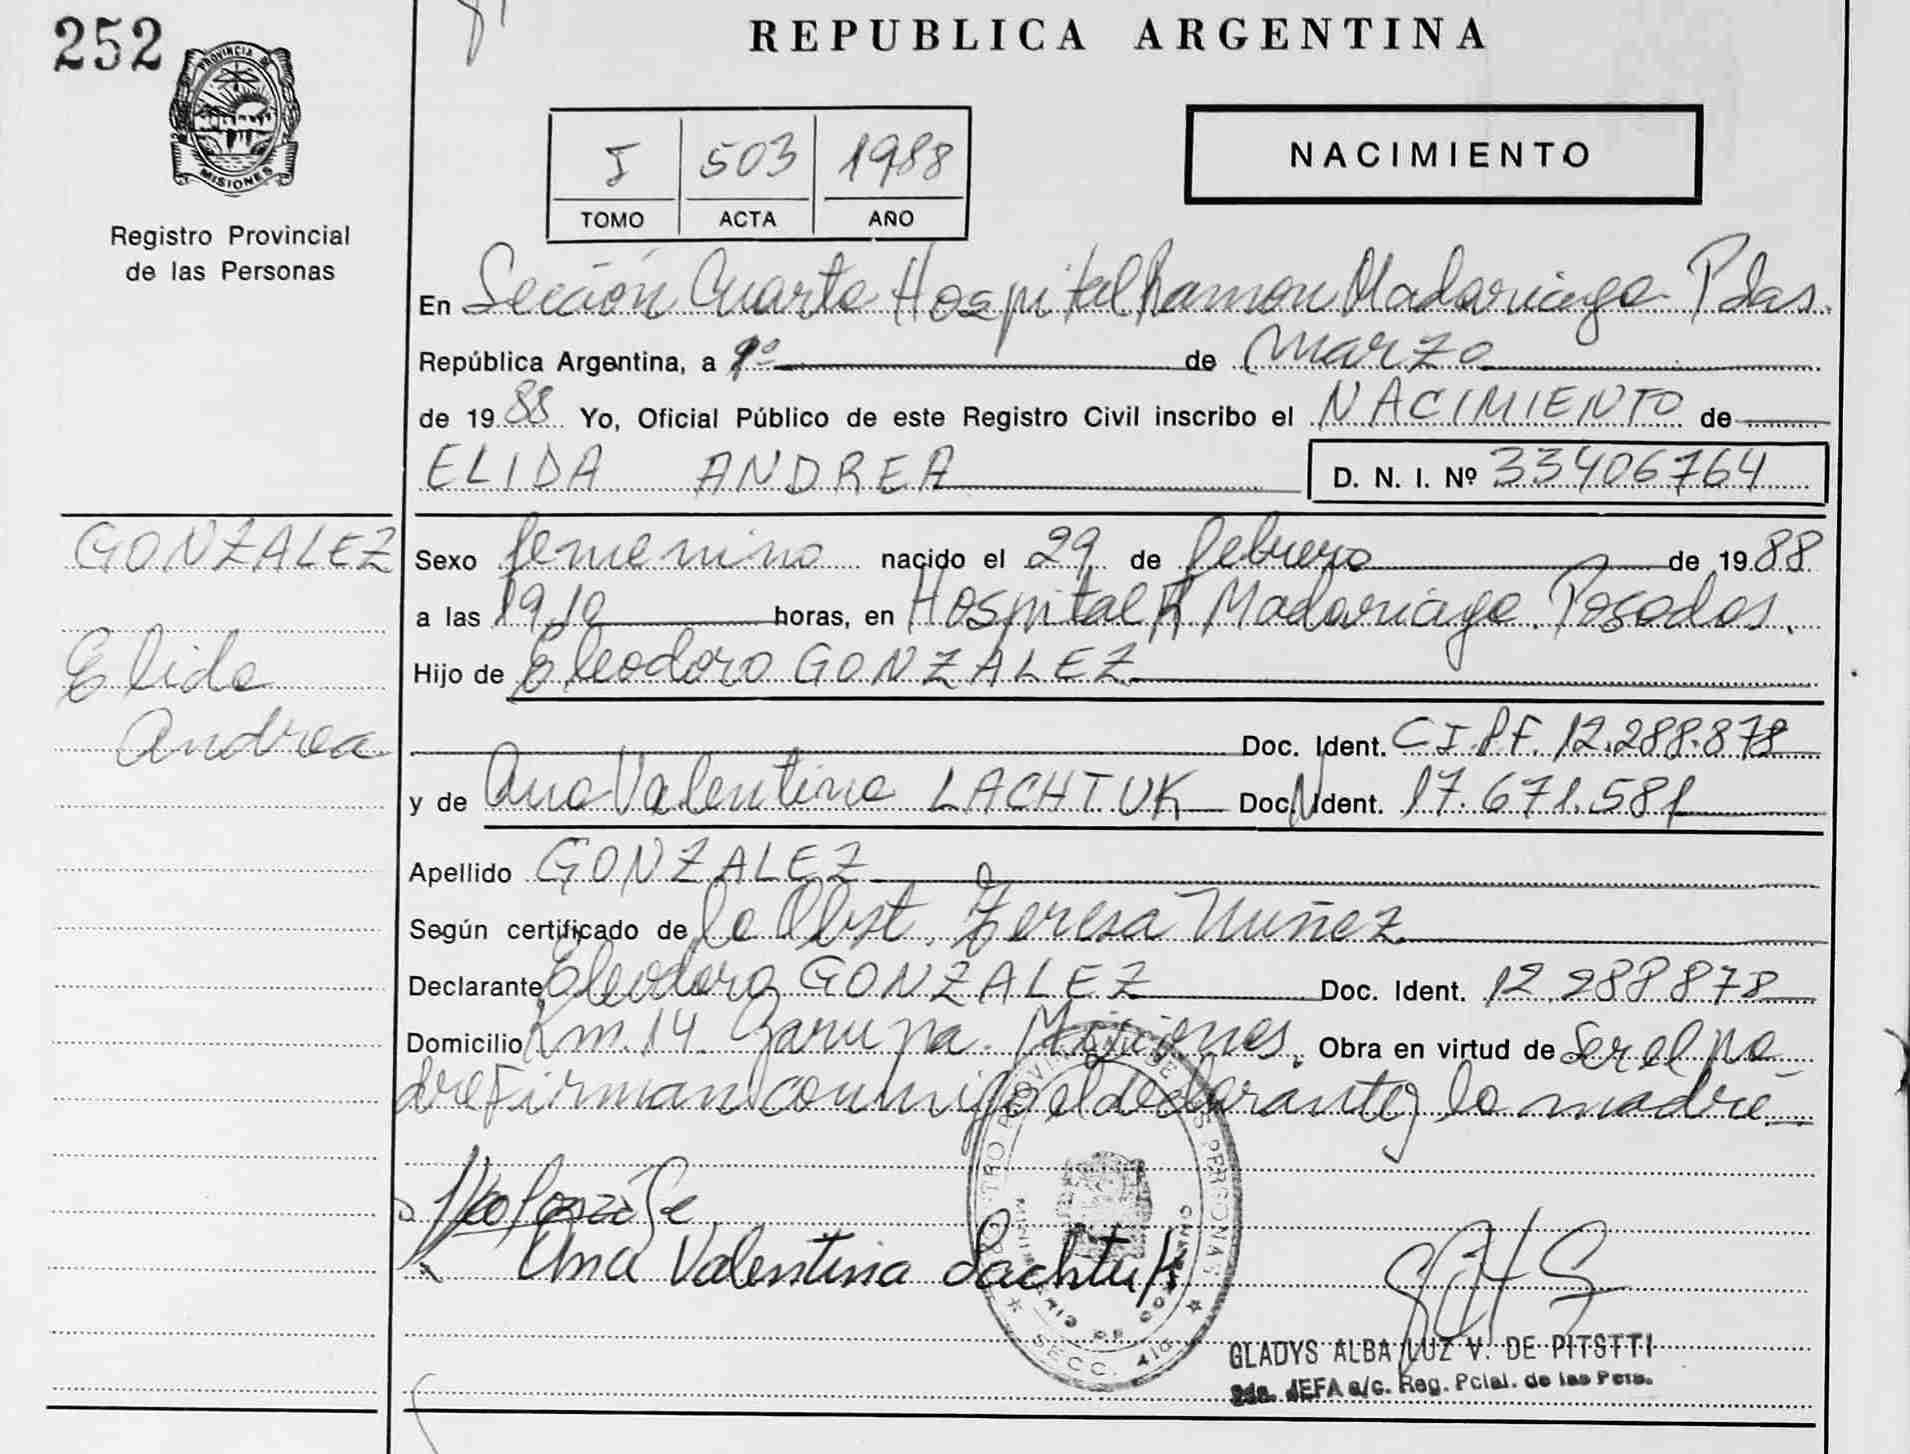 252
PROVINCIA DE
MISIONES
Registro Provincial
de las Personas
REPUBLICA ARGENTINA
I 503 1988
TOMO ACTA AÑO
NACIMIENTO
En Sección Cuarta Hospital Ramon Madariaga Pdas.
República Argentina, a 1º de Marzo
de 1988 Yo, Oficial Público de este Registro Civil inscribo el NACIMIENTO de
ELIDA ANDREA D. N. I. Nº 33406764
GONZALEZ
Elida
Andrea
Sexo femenino nacido el 29 de febrero de 1988
a las 19,10 horas, en Hospital R Madariaga. Posadas.
Hijo de Eleodoro GONZALEZ
Doc. Ident. C.I.P.F. 12.288.878
y de Ana Valentina LACHTUK Doc. Ident. 17.671.581
Apellido GONZALEZ
Según certificado de la Obst. Teresa Nuñez
Declarante Eleodoro GONZALEZ Doc. Ident. 12.288878
Domicilio Km. 14. Garupa. Misiones. Obra en virtud de Ser el pa
dre Firman conmigo el declarante y la madre.
Ana Valentina Lachtuk
REGISTRO PROVINCIAL DE LAS PERSONAS
MINISTERIO DE GOBIERNO
SECC. 4ta.
GLADYS ALBA LUZ V. DE PITSTTI
2da. JEFA a/c. Reg. Pcial. de las Pers.